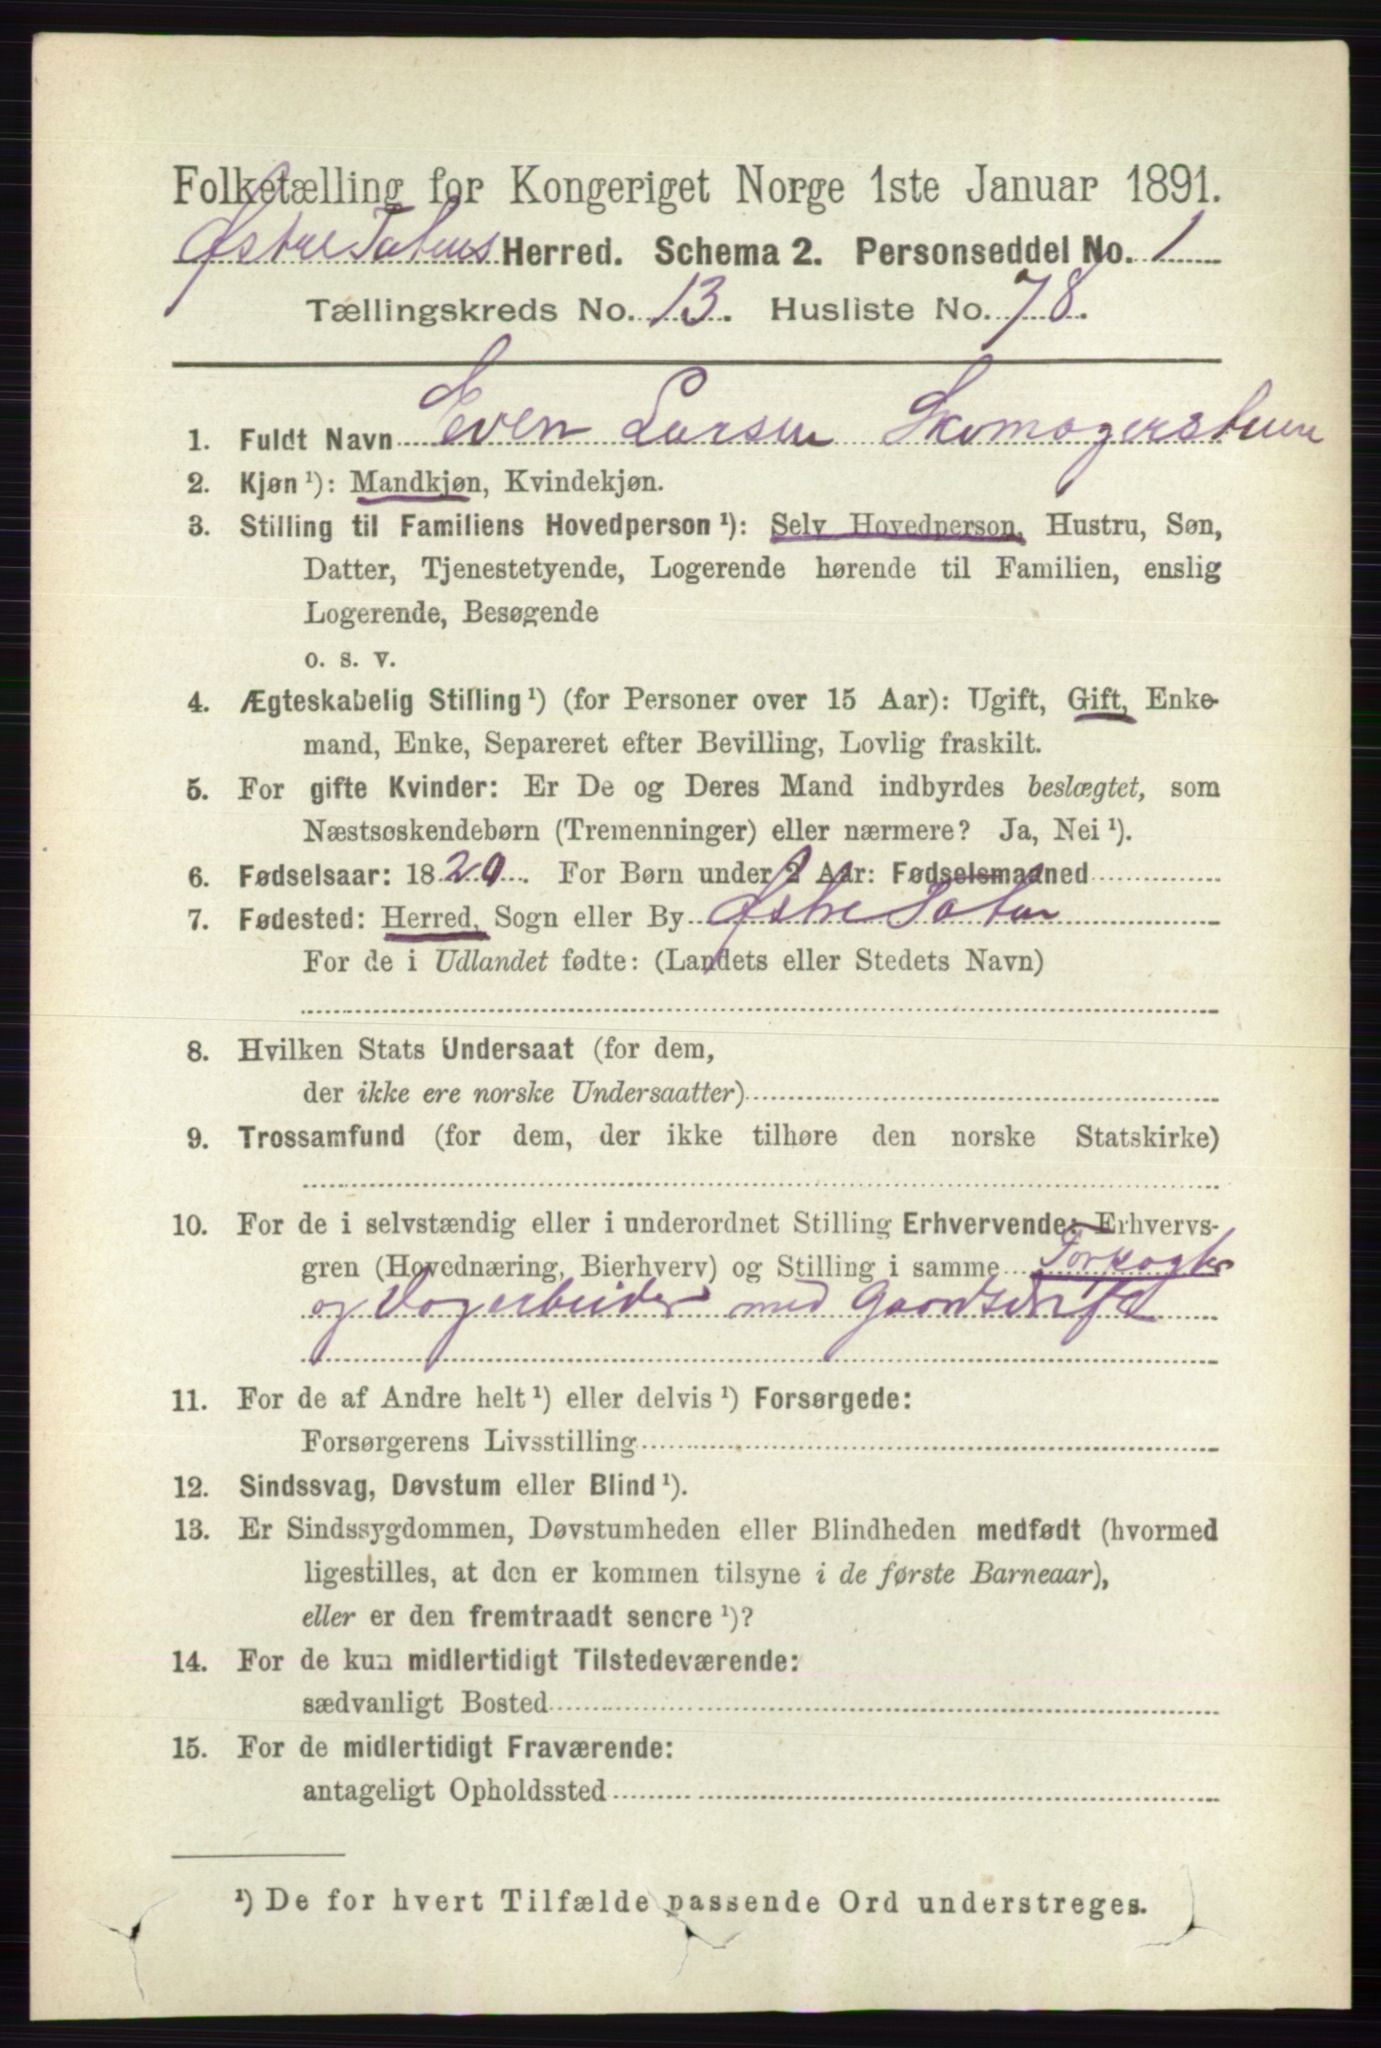 Folketælling for Kongeriget Norge 1ste Januar 1891.
Østre Totens Herred. Schema 2. Personseddel No. 1
Tællingskreds No. 13. Husliste No. 78.
1. Fuldt Navn Even Larsen Skomagerstuen
2. Kjøn ¹): Mandkjøn, Kvindekjøn.
3. Stilling til Familiens Hovedperson ¹): Selv Hovedperson, Hustru, Søn,
Datter, Tjenestetyende, Logerende hørende til Familien, enslig
Logerende, Besøgende
o. s. v.
4. Ægteskabelig Stilling ¹) (for Personer over 15 Aar): Ugift, Gift, Enke-
mand, Enke, Separeret efter Bevilling, Lovlig fraskilt.
5. For gifte Kvinder: Er De og Deres Mand indbyrdes beslægtet, som
Næstsøskendebørn (Tremenninger) eller nærmere? Ja, Nei ¹).
6. Fødselsaar: 1820. For Børn under 2 Aar: Fødselsmaaned
7. Fødested: Herred, Sogn eller By Østre Toten
For de i Udlandet fødte: (Landets eller Stedets Navn)
8. Hvilken Stats Undersaat (for dem,
der ikke ere norske Undersaatter)
9. Trossamfund (for dem, der ikke tilhøre den norske Statskirke)
10. For de i selvstændig eller i underordnet Stilling Erhvervende: Erhvervs-
gren (Hovednæring, Bierhverv) og Stilling i samme Forpagter
og Dagarbeider med Gaardsdrift
11. For de af Andre helt ¹) eller delvis ¹) Forsørgede:
Forsørgerens Livsstilling
12. Sindssvag, Døvstum eller Blind ¹).
13. Er Sindssygdommen, Døvstumheden eller Blindheden medfødt (hvormed
ligestilles, at den er kommen tilsyne i de første Barneaar),
eller er den fremtraadt senere ¹)?
14. For de kun midlertidigt Tilstedeværende:
sædvanligt Bosted
15. For de midlertidigt Fraværende:
antageligt Opholdssted
¹) De for hvert Tilfælde passende Ord understreges.